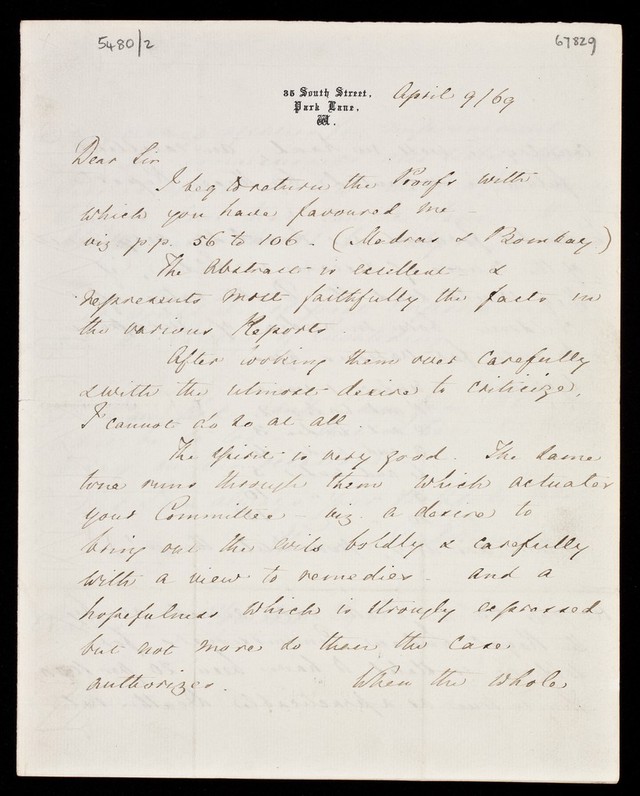 5480/2
67829
35 South Street,
Park Lane,
W.
April 9/69
Dear Sir
I beg to return the Proofs with
which you have favoured me -
viz pp. 56 to 106 - (Madras & Bombay)
The Abstract is excellent &
represents most faithfully the facts in
the various Reports.
After looking them over carefully
& with the utmost desire to criticize,
I cannot do so at all.
The spirit is very good. The same
tone runs through them which actuates
your Committee - viz. a desire to
bring out the evils boldly & carefully
with a view to remedies - and a
hopefulness which is strongly expressed
but not more so than the case
authorizes. When the whole